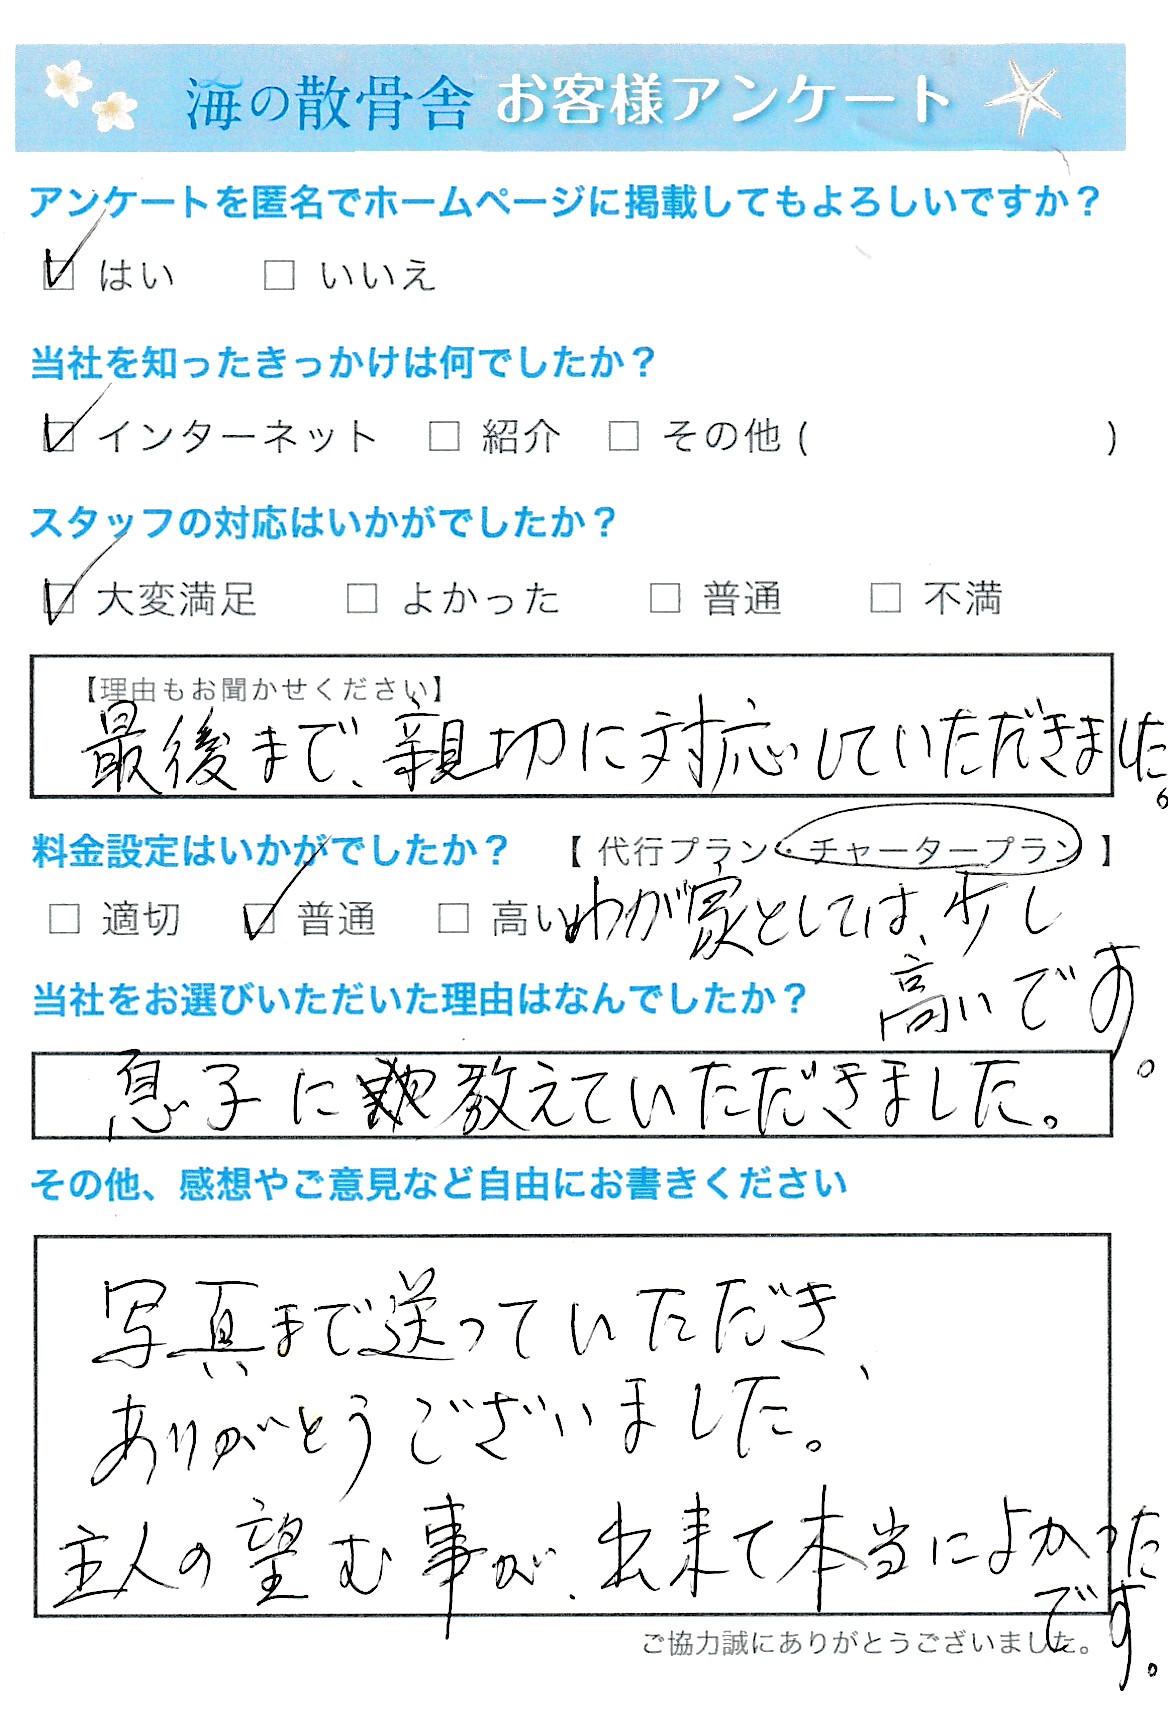 海の散骨舎 お客様アンケート
アンケートを匿名でホームページに掲載してもよろしいですか？
☑ はい □ いいえ
当社を知ったきっかけは何でしたか？
☑ インターネット □ 紹介 □ その他 ( )
スタッフの対応はいかがでしたか？
☑ 大変満足 □ よかった □ 普通 □ 不満
【理由もお聞かせください】
最後まで、親切に対応していただきました。
料金設定はいかがでしたか？ 【 代行プラン・チャータープラン 】
□ 適切 ☑ 普通 □ 高い わが家としては、少し
高いです。
当社をお選びいただいた理由はなんでしたか？
息子に教えていただきました。
その他、感想やご意見など自由にお書きください
写真まで送っていただき、
ありがとうございました。
主人の望む事が、出来て本当によかった
です。
ご協力誠にありがとうございました。